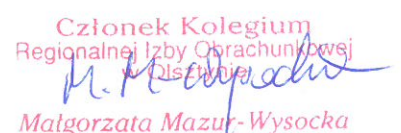 Członek Kolegium
Regionalnej Izby Obrachunkowej
w Olsztynie
M. M-Wysocka
Małgorzata Mazur-Wysocka